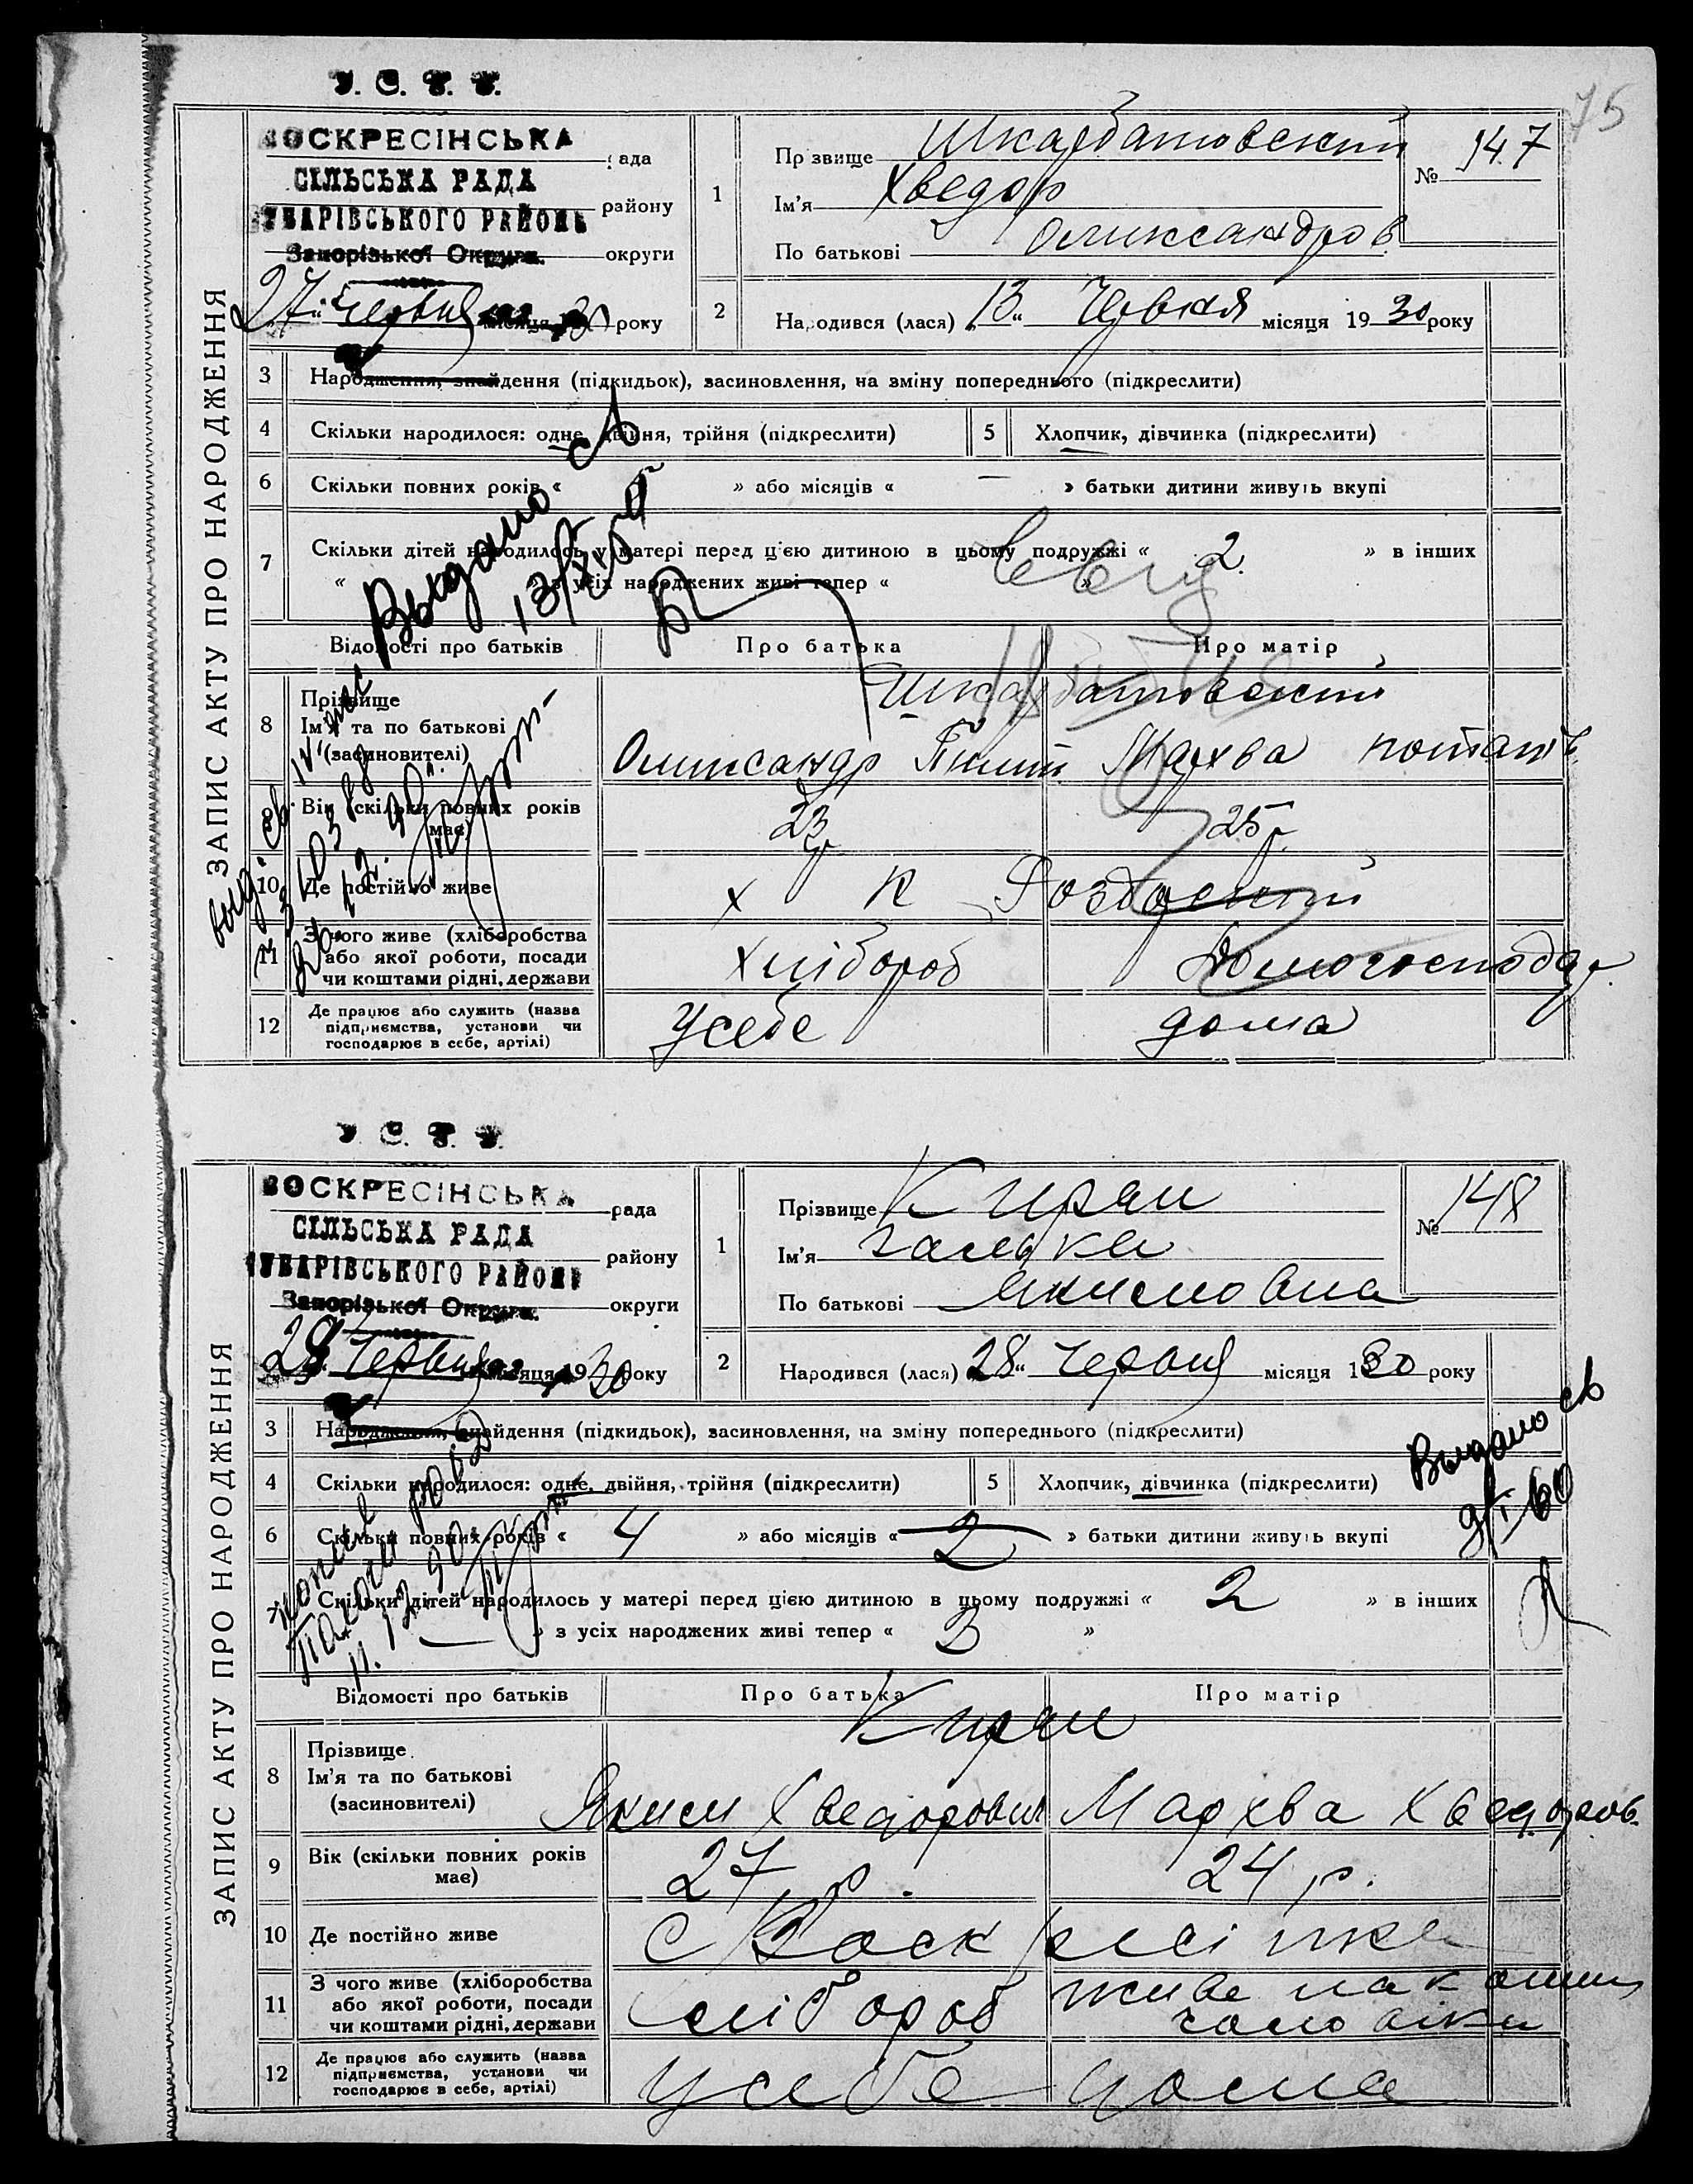 75
У. С. Р. Р.
ЗАПИС АКТУ ПРО НАРОДЖЕННЯ
ВОСКРЕСІНСЬКА рада
СІЛЬСЬКА РАДА
району
ЧУБАРІВСЬКОГО РАЙОНУ
Запорізької Округи округи
27 червня місяця 1930 року
1
Прізвище Шкарбатовский
№ 147
Ім'я Хведор
По батькові Олександров
2
Народився (лася) „13“ Червня місяця 1930 року
3 Народження, знайдення (підкидьок), засиновлення, на зміну попереднього (підкреслити)
4 Скільки народилося: одне, двійня, трійня (підкреслити) 5 Хлопчик, дівчинка (підкреслити)
6 Скільки повних років « » або місяців « — » батьки дитини живуть вкупі
7 Скільки дітей народилось у матері перед цією дитиною в цьому подружжі « 2 » в інших
« » з усіх народжених живі тепер « »
Выдано св
Відомості про батьків Про батька Про матір
8 Прізвище
Ім'я та по батькові
(засиновителі)
Шкарбатовский
Олександр Пилип Мархва Потапів.
9 Вік (скільки повних років має) 23 р 25 р
10 Де постійно живе х
11 З чого живе (хліборобства
або якої роботи, посади
чи коштами рідні, держави
Хлібороб Домогосподар.
12 Де працює або служить (назва
підприємства, установи чи
господарює в себе, артілі)
Усебе дома
У. С. Р. Р.
ЗАПИС АКТУ ПРО НАРОДЖЕННЯ
ВОСКРЕСІНСЬКА рада
СІЛЬСЬКА РАДА
ЧУБАРІВСЬКОГО РАЙОНУ району
Запорізької Округи округи
29 Червня місяця 1930 року
1
Прізвище Кирян
№ 148
Ім'я Галька
По батькові Якимовна
2
Народився (лася) „28“ Червня місяця 1930 року
3 Народження, знайдення (підкидьок), засиновлення, на зміну попереднього (підкреслити)
4 Скільки народилося: одне, двійня, трійня (підкреслити) 5 Хлопчик, дівчинка (підкреслити)
6 Скільки повних років « 4 » або місяців « 2 » батьки дитини живуть вкупі
7 Скільки дітей народилось у матері перед цією дитиною в цьому подружжі « 2 » в інших
« — » з усіх народжених живі тепер « 3 »
Выдано св
9/I 60
11.12.90
Відомості про батьків Про батька Про матір
8 Прізвище
Ім'я та по батькові
(засиновителі)
Кирян
Яким Хведорович Мархва Хведоров.
9 Вік (скільки повних років має) 27 р. 24 р.
10 Де постійно живе с Воскресінка
11 З чого живе (хліборобства
або якої роботи, посади
чи коштами рідні, держави
хлібороб живе на кошти
чоловіка
12 Де працює або служить (назва
підприємства, установи чи
господарює в себе, артілі)
Усебе дома